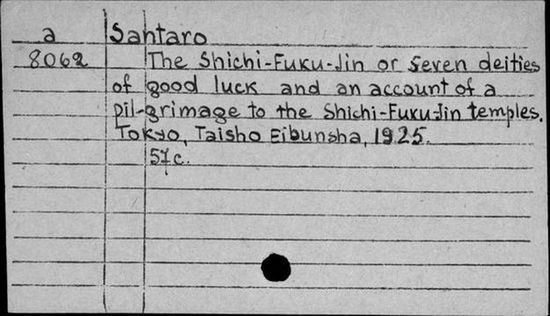 a Santaro
8062 The Shichi-Fuku-Jin or seven deities
of good luck and an account of a
pil-grimage to the Shichi-Fuku-Jin temples.
Tokyo, Taisho Eibunsha, 1925.
57c.